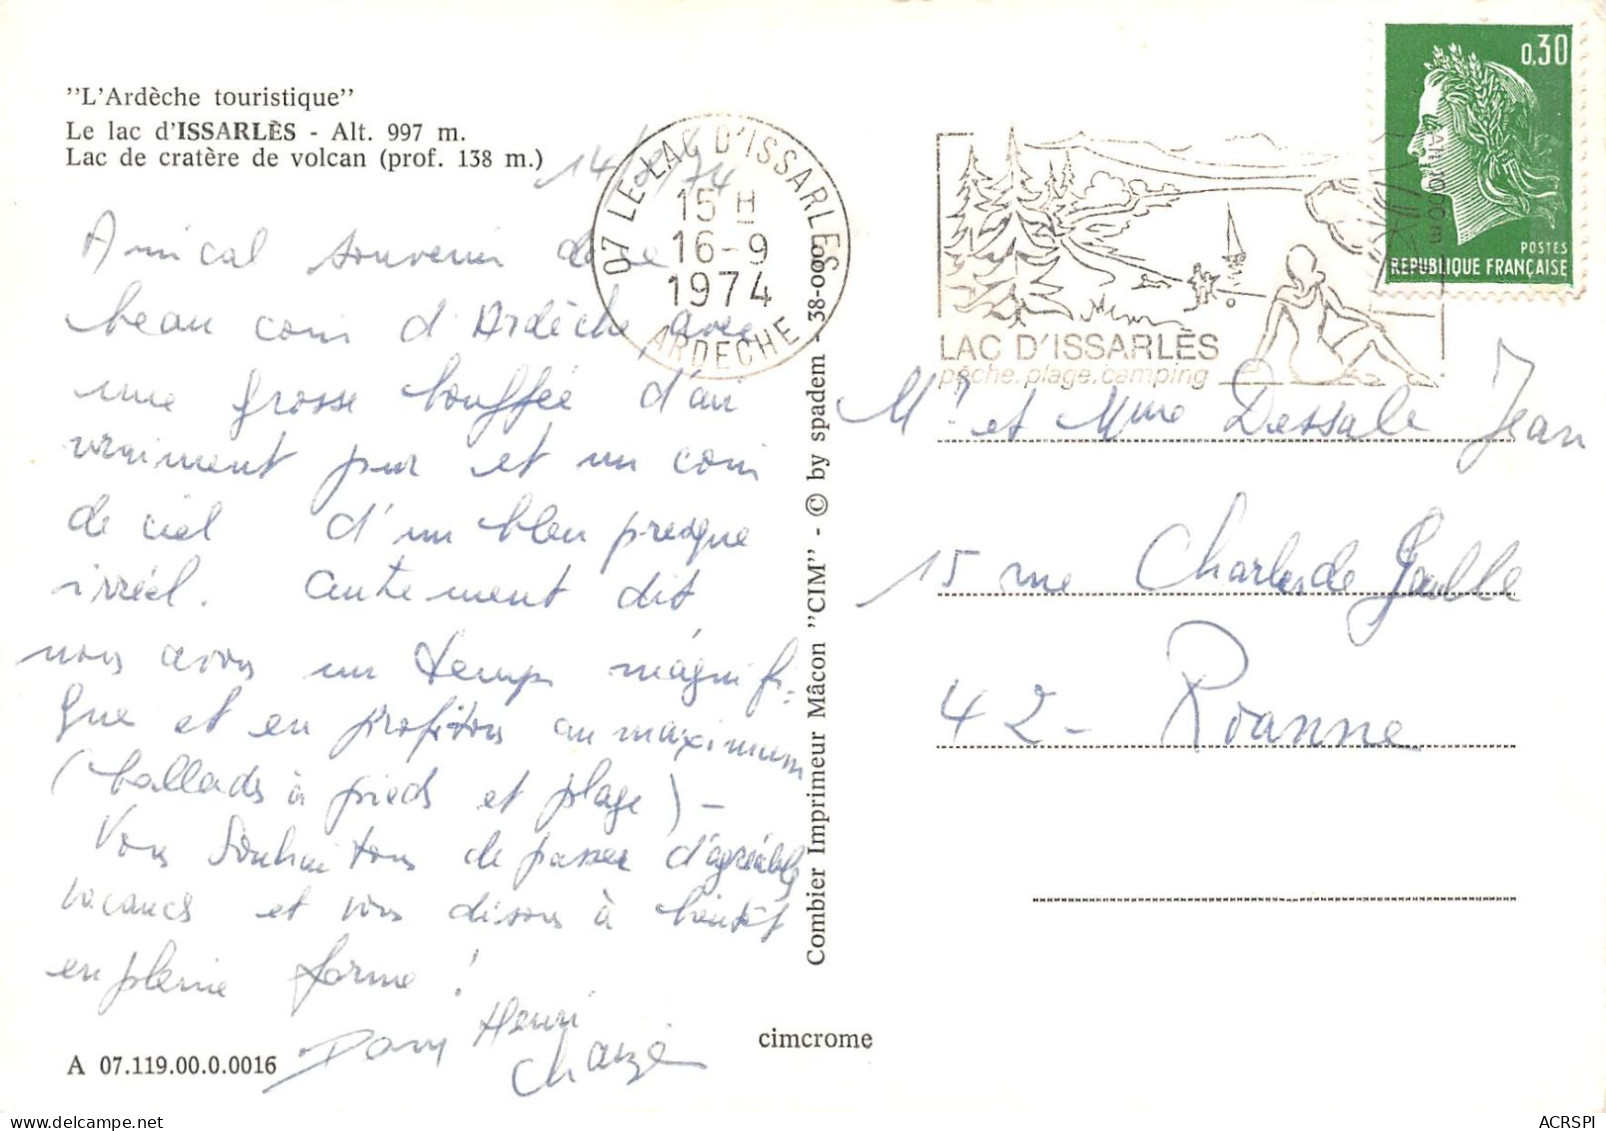 "L'Ardèche touristique"
Le lac d'ISSARLÈS - Alt. 997 m.
Lac de cratère de volcan (prof. 138 m.)
14/9/74
Amical souvenir de ce
beau coin d'Ardèche, avec
une grosse bouffée d'air
vraiment pur et un coin
de ciel d'un bleu presque
irréel. Autrement dit
nous avons un temps magnifi-
que et en profitons au maximum
(ballads à pieds et plage) -
Vous souhaitons de passer d'agréables
vacances et vous disons à bientôt
en pleine forme !
Dany Henri
A 07.119.00.0.0016
cimcrome
Combier Imprimeur Mâcon "CIM" - © by spadem - 38-000
07 LE LAC D'ISSARLES
15 H
16-9
1974
ARDECHE
Alt. 1000 m
LAC D'ISSARLÈS
pêche.plage.camping
0,30
POSTES
REPUBLIQUE FRANÇAISE
Mr et Mme Dessale Jean
15 rue Charles de Gaulle
42 - Roanne
ACRSPI